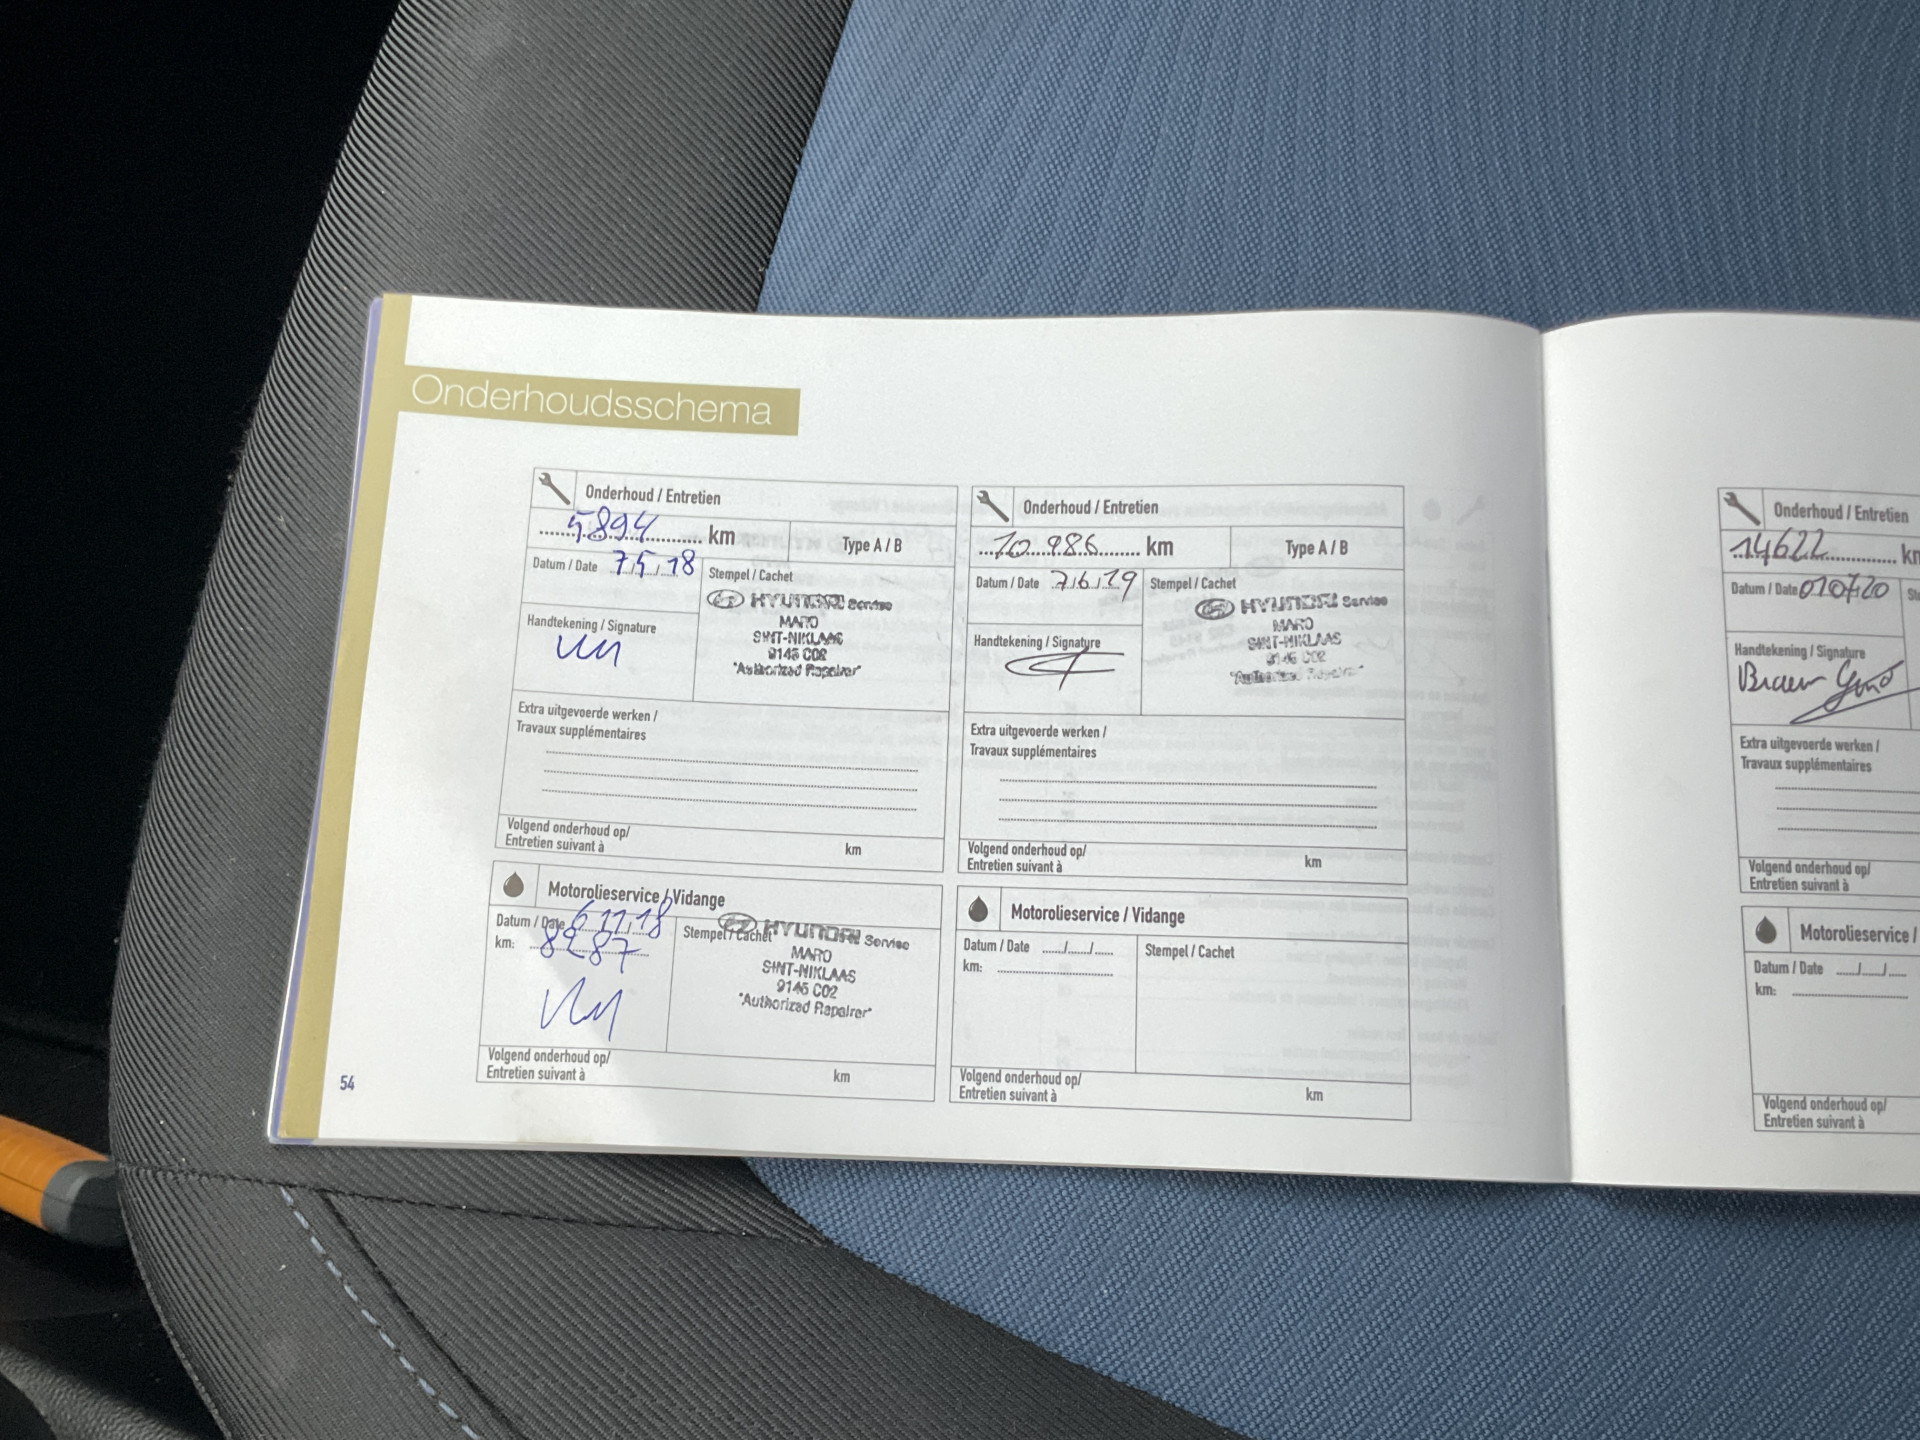 Onderhoudsschema
Onderhoud / Entretien
5894 km
Type A / B
Datum / Date 7/5/18
Stempel / Cachet
HYUNDAI Service
MARO
SINT-NIKLAAS
9145 C02
"Authorized Repairer"
Handtekening / Signature
Extra uitgevoerde werken /
Travaux supplémentaires
Volgend onderhoud op/
Entretien suivant à km
Motorolieservice / Vidange
Datum / Date 6/11/18
km: 8287
Stempel / Cachet
HYUNDAI Service
MARO
SINT-NIKLAAS
9145 C02
"Authorized Repairer"
Volgend onderhoud op/
Entretien suivant à km
54
Onderhoud / Entretien
10.986 km
Type A / B
Datum / Date 7/6/19
Stempel / Cachet
HYUNDAI Service
MARO
SINT-NIKLAAS
9145 C02
"Authorized Repairer"
Handtekening / Signature
Extra uitgevoerde werken /
Travaux supplémentaires
Volgend onderhoud op/
Entretien suivant à km
Motorolieservice / Vidange
Datum / Date ..../..../....
km:
Stempel / Cachet
Volgend onderhoud op/
Entretien suivant à km
Onderhoud / Entretien
14622 km
Datum / Date 010720
Handtekening / Signature
Extra uitgevoerde werken /
Travaux supplémentaires
Volgend onderhoud op/
Entretien suivant à
Motorolieservice /
Datum / Date ..../..../....
km:
Volgend onderhoud op/
Entretien suivant à